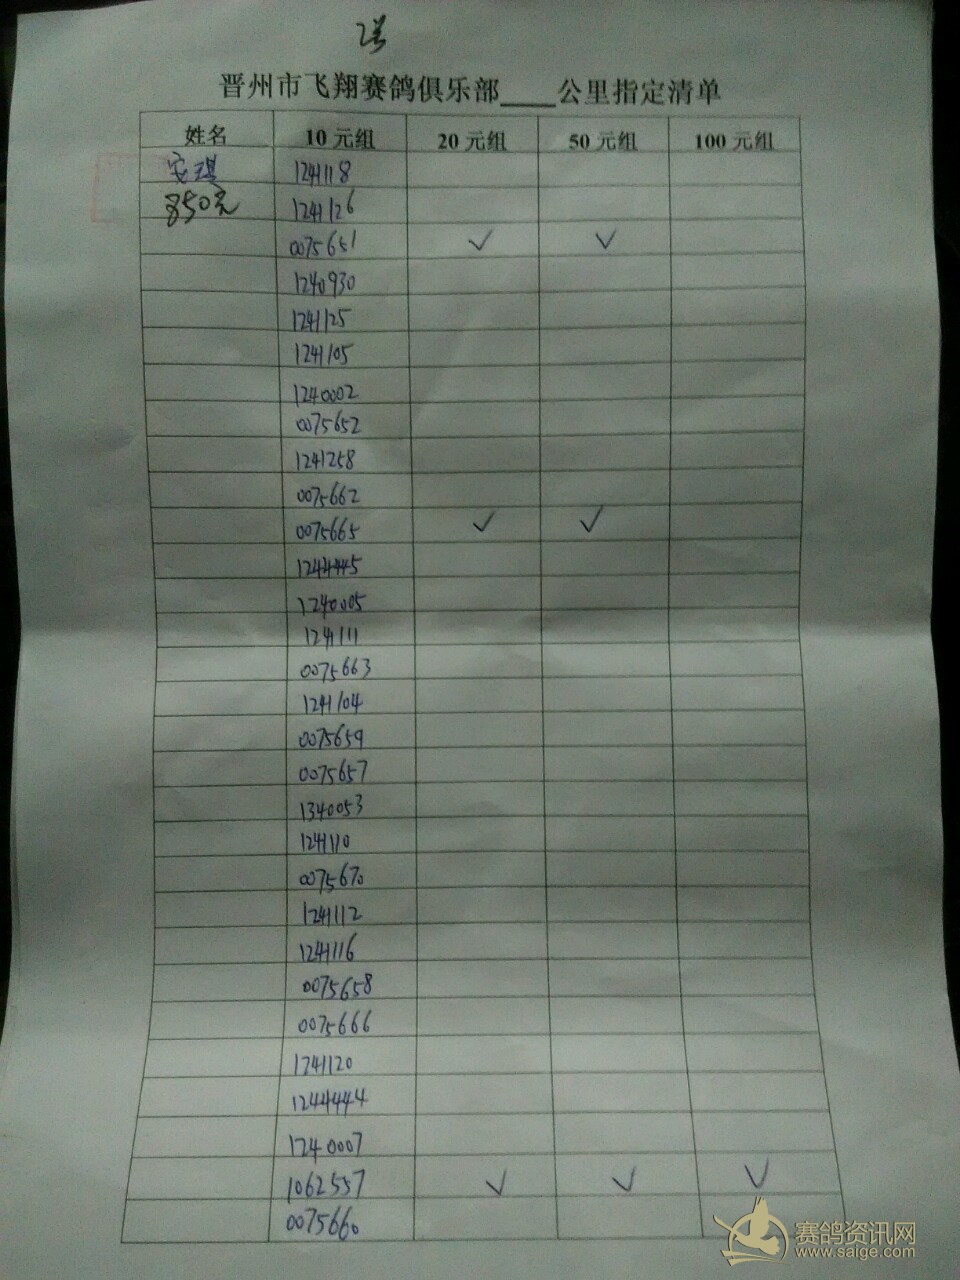 2号
晋州市飞翔赛鸽俱乐部____公里指定清单
姓名 10元组 20元组 50元组 100元组
安琪 1241118
850元 1241126
0075651 ✓ ✓
1240930
1241125
1241105
1240002
0075652
1241258
0075662
0075665 ✓ ✓
1244445
1240005
1241111
0075663
1241104
0075659
0075657
1340053
1241110
0075670
1241112
1241116
0075658
0075666
1241120
1244444
1240007
1062557 ✓ ✓ ✓
0075660
赛鸽资讯网
www.saige.com